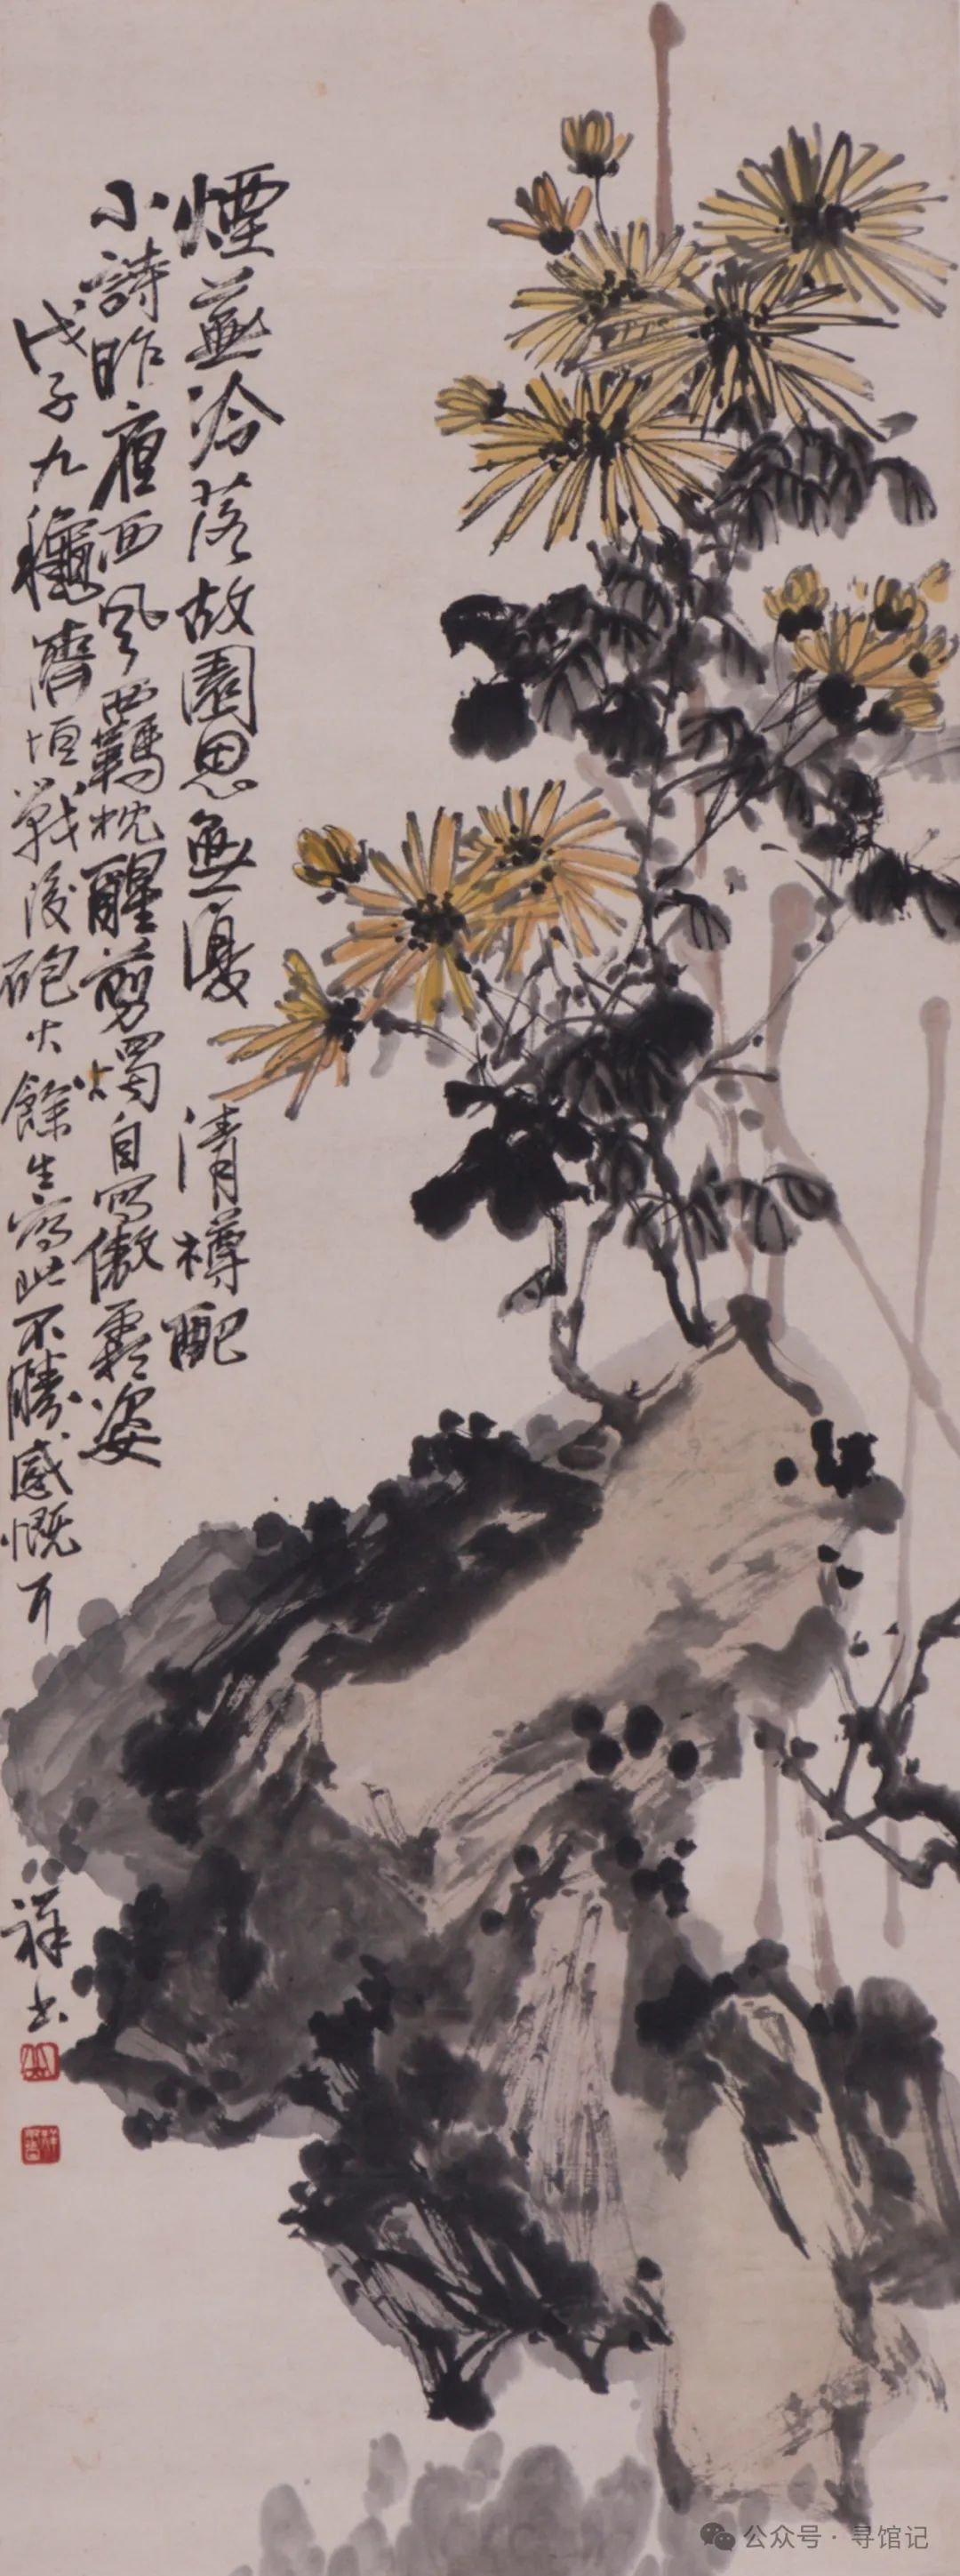 煙蕪冷落故園思無復清樽配
小詩昨西風羈枕醒剪燭自寫傲霜姿
戊子九龝濟垣戰後砲火餘生寫此不勝感慨
祥书
公众号·寻馆记